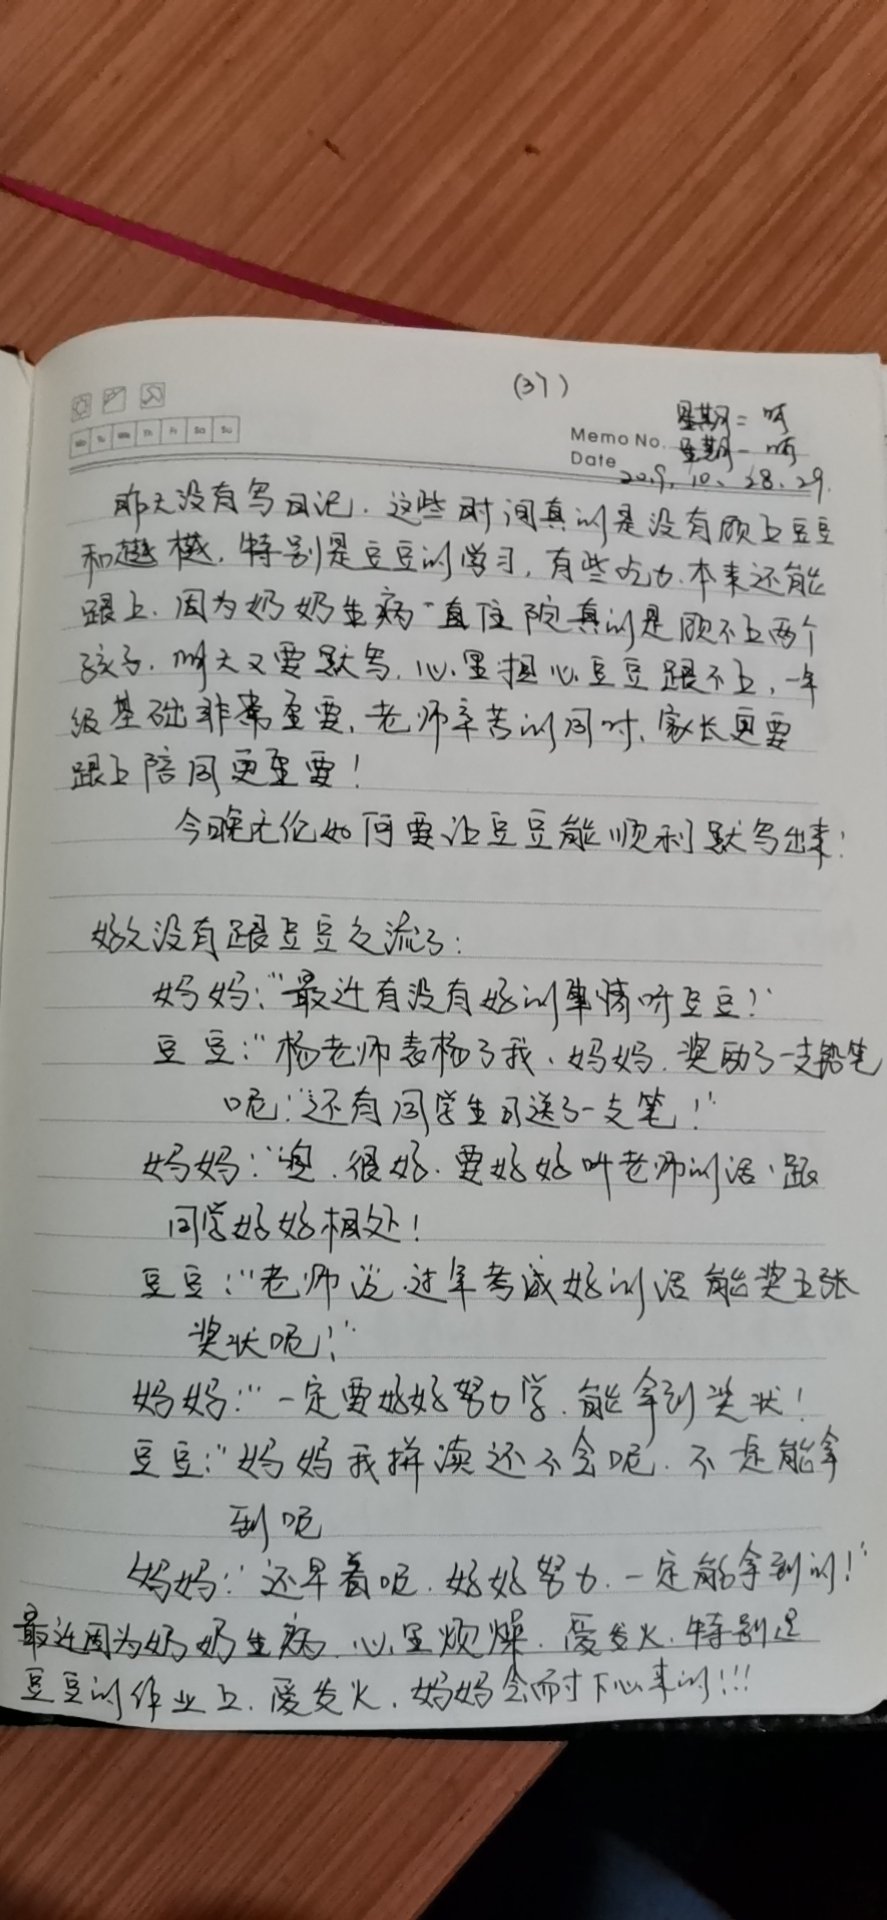 (37)
星期二 晴
Mo Tu We Th Fr Sa Su
Memo No. 星期一 晴
Date 2019.10.28.29.
昨天没有写日记.这些时间真的是没有顾上豆豆
和樾樾.特别是豆豆的学习,有些吃力.本来还能
跟上.因为奶奶生病一直住院真的是顾不上两个
孩子.明天又要默写.心里担心豆豆跟不上,一年
级基础非常重要.老师辛苦的同时.家长更要
跟上陪同更重要!
今晚无论如何要让豆豆能顺利默写出来!
好久没有跟豆豆交流了:
妈妈:“最近有没有好的事情呀豆豆!”
豆豆:“杨老师表杨了我.妈妈.奖励了一支铅笔
呢!”还有同学生日送了一支笔!”
妈妈:“奥.很好.要好好听老师的话.跟
同学好好相处!
豆豆:“老师说.过年考试好的话能奖五张
奖状呢!”
妈妈:“一定要好好努力学.能拿到奖状!
豆豆:“妈妈我拼读还不会呢.不是能拿
到呢
妈妈:“还早着呢.好好努力.一定能拿到的!”
最近因为奶奶生病.心里烦燥.爱发火.特别是
豆豆的作业上.爱发火.妈妈会耐下心来的!!!